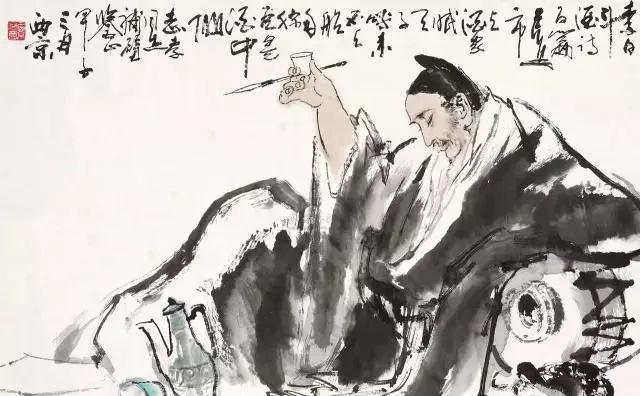 李白
斗酒诗
百篇
长安
市
上酒家
眠
天
子
呼来
不上
船
自称
臣是
酒中
仙
同志
补题
鉴正
甲子
三月
西京